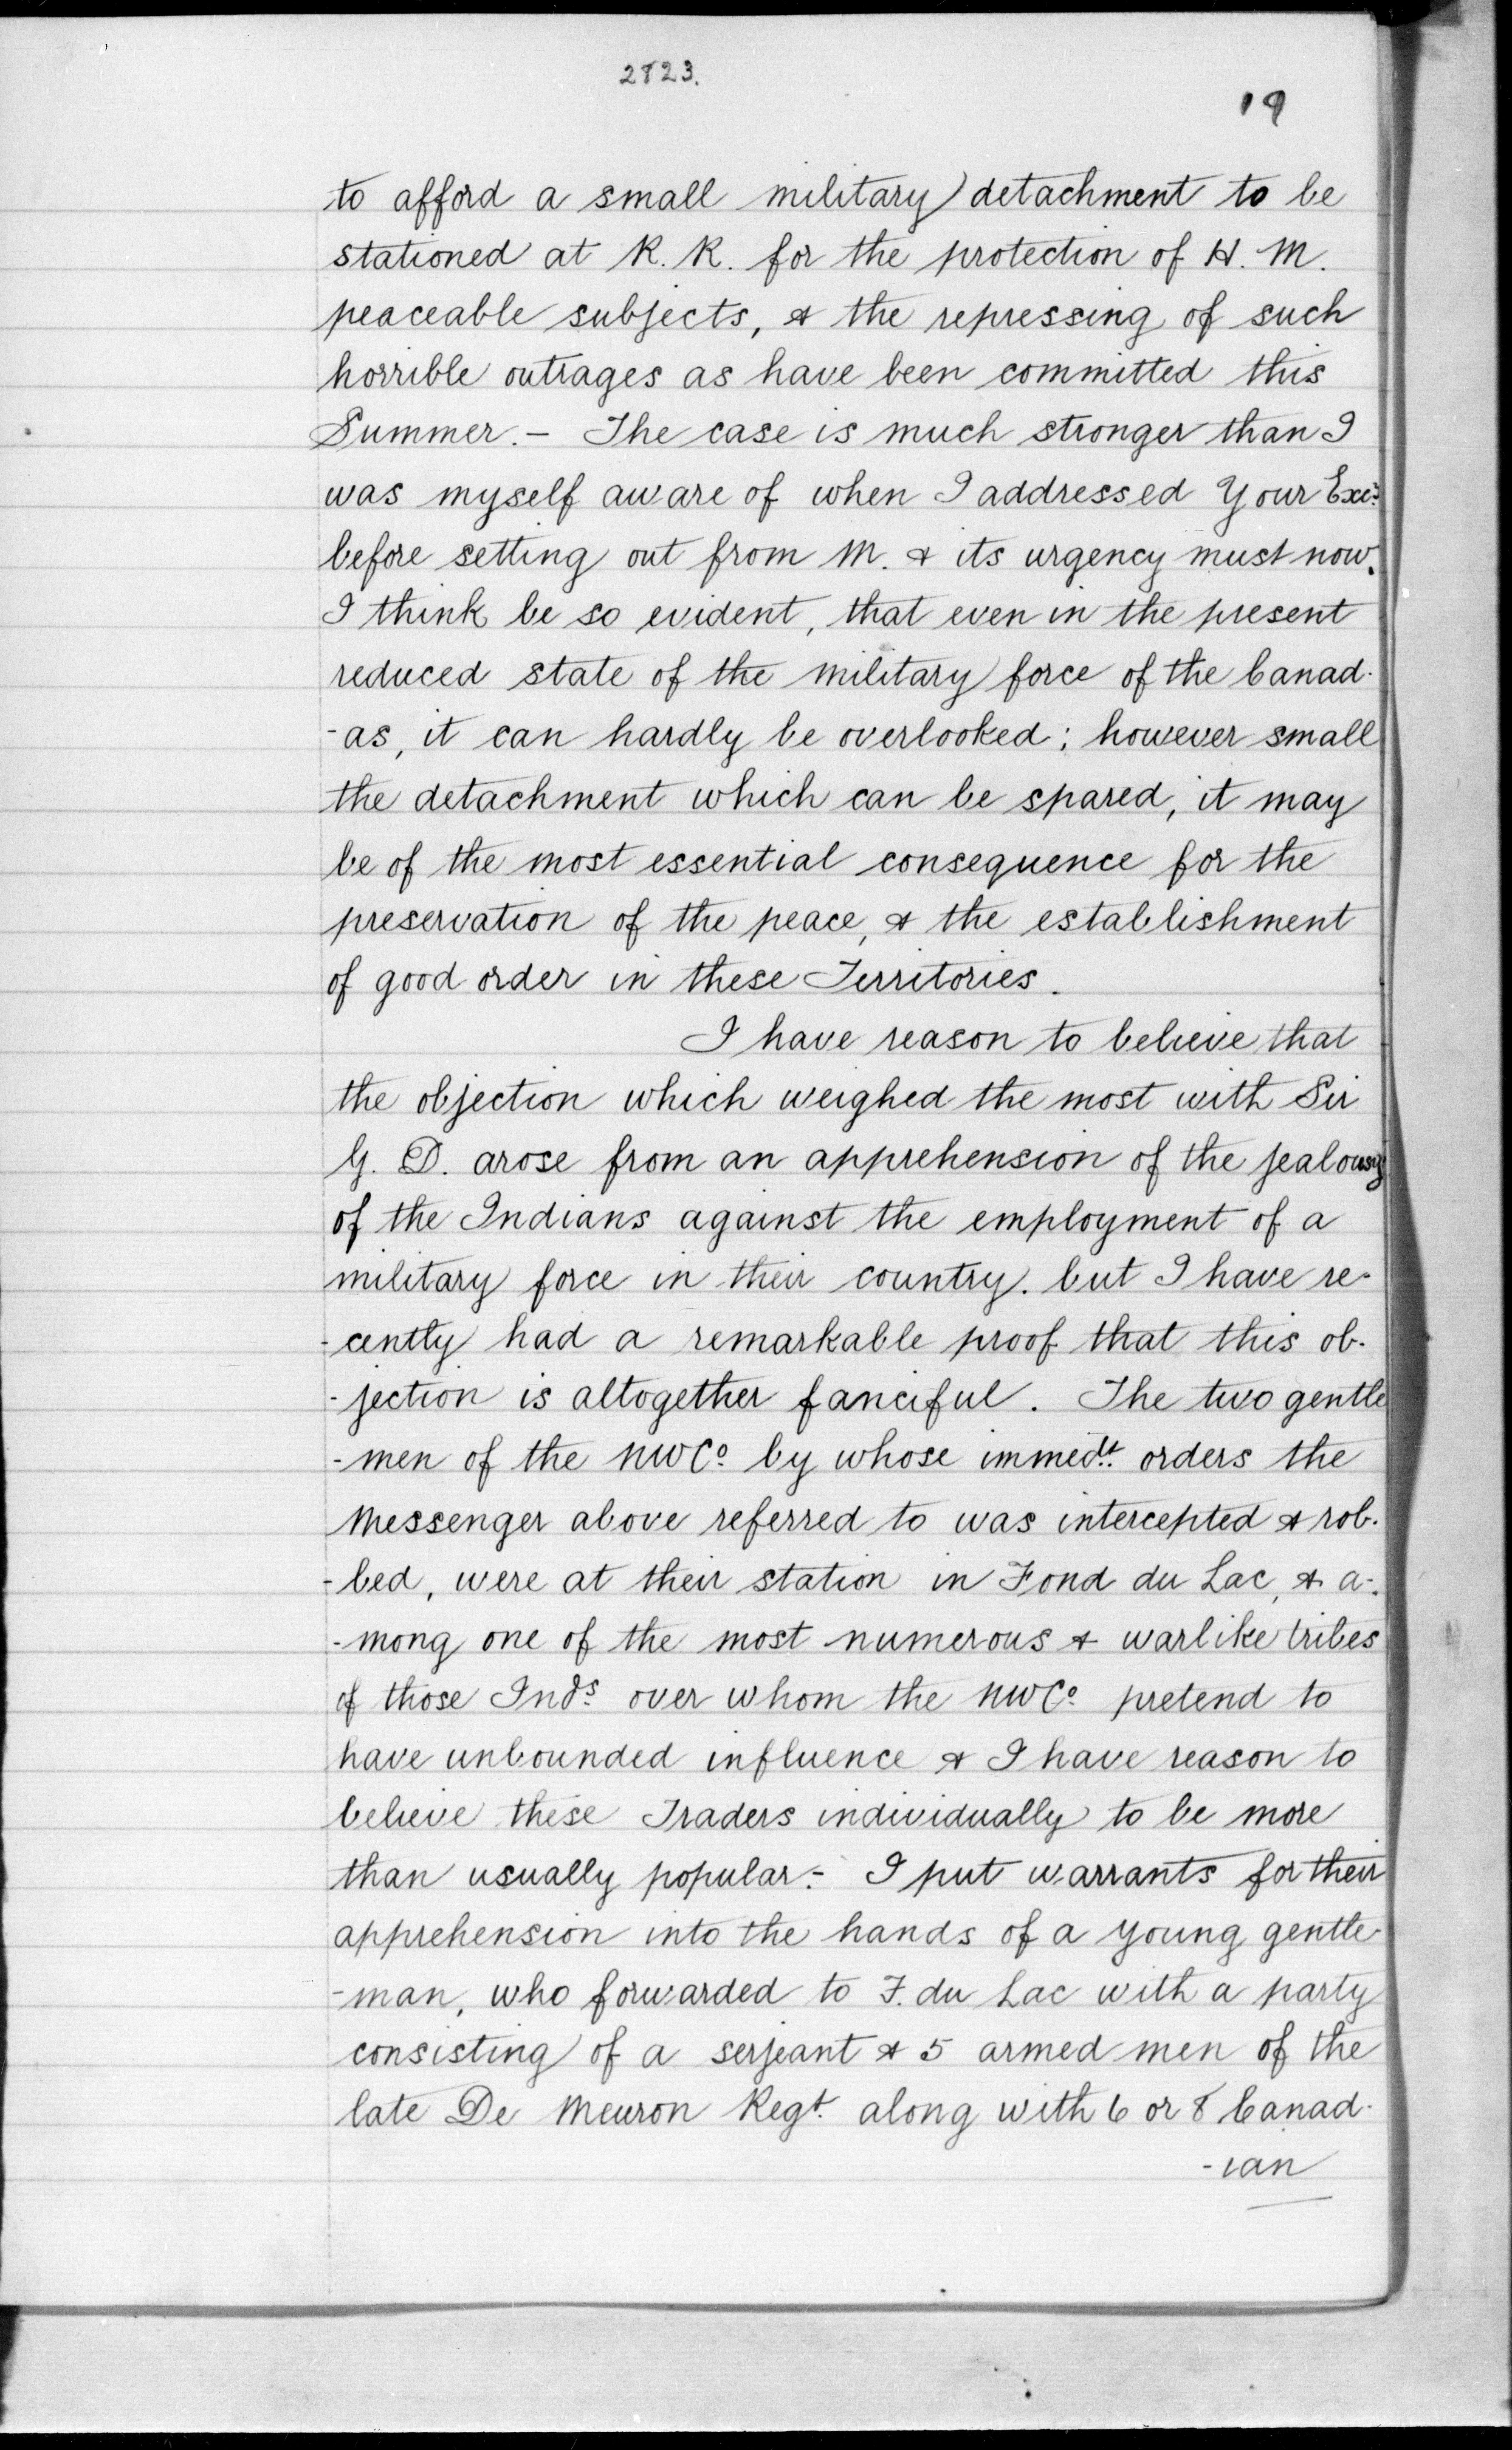 2823.
19
to afford a small military detachment to be
stationed at R. R. for the protection of H. M.
peaceable subjects, & the repressing of such
horrible outrages as have been committed this
Summer. - The case is much stronger than I
was myself aware of when I addressed Your Excy.
before setting out from M. & its urgency must now.
I think be so evident, that even in the present
reduced state of the military force of the Canad-
-as, it can hardly be overlooked; however small
the detachment which can be spared, it may
be of the most essential consequence for the
preservation of the peace, & the establishment
of good order in these Territories.
I have reason to believe that
the objection which weighed the most with Sir
G. D. arose from an apprehension of the jealousy
of the Indians against the employment of a
military force in their country. but I have re-
-cently had a remarkable proof that this ob-
-jection is altogether fanciful. The two gentle
-men of the NWCo. by whose immedt. orders the
Messenger above referred to was intercepted & rob-
-bed, were at their station in Fond du Lac, & a-
-mong one of the most numerous & warlike tribes
of those Inds. over whom the NWCo. pretend to
have unbounded influence & I have reason to
believe these Traders individually to be more
than usually popular. - I put warrants for their
apprehension into the hands of a young gentle-
-man, who forwarded to F. du Lac with a party
consisting of a serjeant & 5 armed men of the
late De Meuron Regt. along with 6 or 8 Canad-
-ian